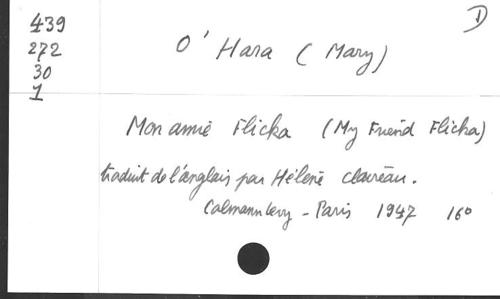 D
439
272
30
1
O'Hara (Mary)
Mon amie Flicka (My Friend Flicka)
traduit de l'anglais par Hélène Claireau.
Calmann Levy - Paris 1947 16º